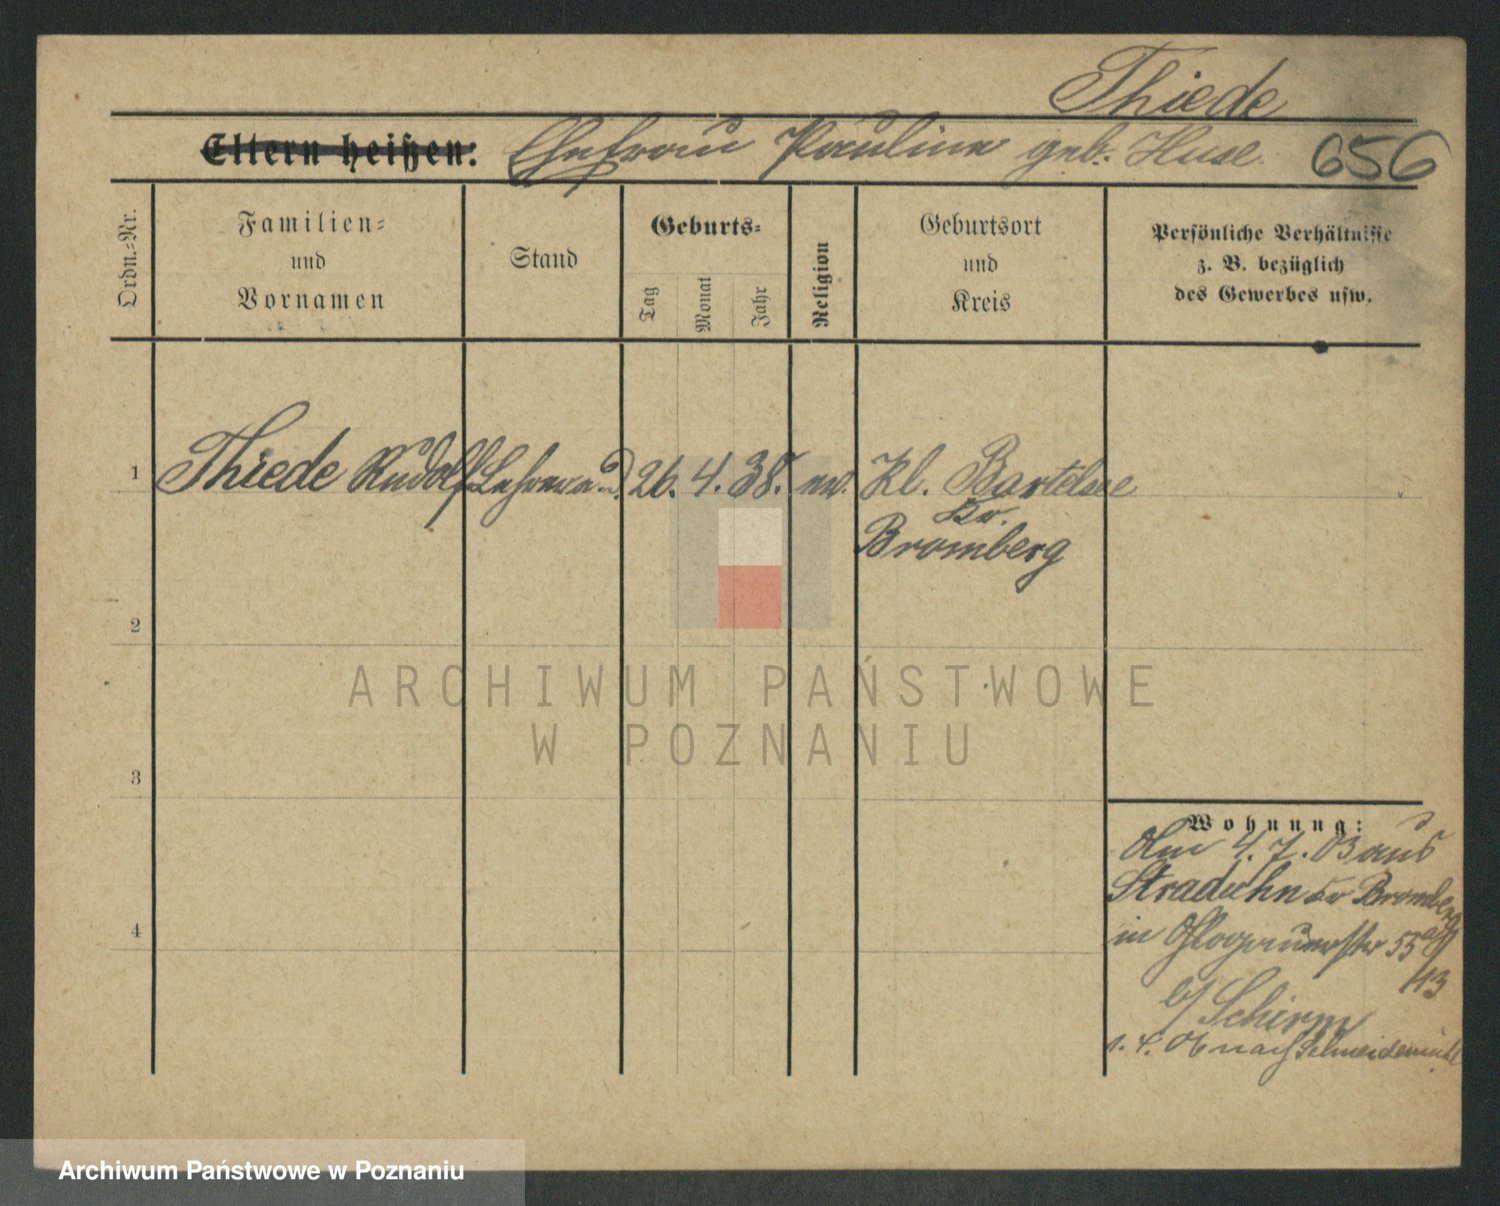 Thiede
Eltern heißen: Ehefrau Pauline geb. Huse. 656
Ordn.-Nr.
Familien-
und
Vornamen
Stand
Geburts-
Tag
Monat
Jahr
Religion
Geburtsort
und
Kreis
Persönliche Verhältnisse
z. B. bezüglich
des Gewerbes usw.
1 Thiede Rudolf Lehrer a. D. 26. 4. 38. ev. Kl. Bartelsee
Kr.
Bromberg
2
3
4
Wohnung:
Am 4. 7. 03 aus
Bromberg
in Glogauerstr 55
b/ Schirm
4. 06 nach Schneidemühl
ARCHIWUM PAŃSTWOWE
W POZNANIU
Archiwum Państwowe w Poznaniu